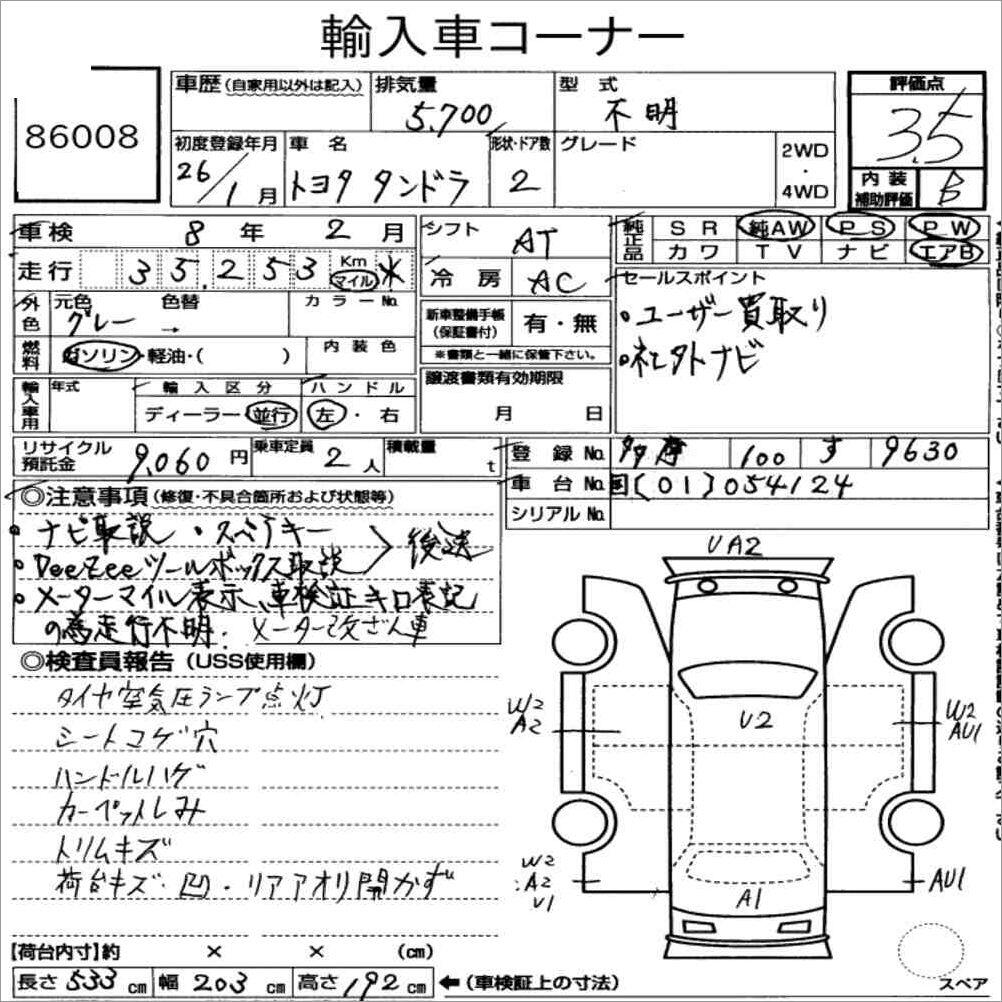 輸入車コーナー
86008
車歴(自家用以外は記入)
排気量 5,700
型式 不明
評価点 3.5
初度登録年月 26/1月
車名 トヨタ タンドラ
形状・ドア数 2
グレード
2WD・4WD
内装補助評価 B
車検 8年 2月
シフト AT
純正品 SR 純AW PS PW
カワ TV ナビ エアB
走行 35,253 Km マイル ※
冷房 AC
セールスポイント
・ユーザー買取り
・社外ナビ
外色 元色 グレー 色替 → カラーNo.
新車整備手帳(保証書付) 有・無
※書類と一緒に保管下さい。
燃料 ガソリン・軽油・( ) 内装色
輸入車用 年式 輸入区分 ハンドル
ディーラー・並行 左・右
譲渡書類有効期限
月 日
リサイクル預託金 9,060円
乗車定員 2人
積載量 t
登録No. 多摩 100 す 9630
車台No. 国[01]054124
シリアルNo.
◎注意事項(修復・不具合箇所および状態等)
・ナビ取説 ・スペアキー
・DeeZeeツールボックス取説 〉後送
・メーターマイル表示、車検証キロ表記
の為走行不明. メーター改ざん車
◎検査員報告(USS使用欄)
タイヤ空気圧ランプ点灯
シートコゲ穴
ハンドルハゲ
カーペットしみ
トリムキズ
荷台キズ・凹・リアアオリ開かず
UA2
W2
A2
U2
W2
AU1
W2
A2
U1
A1
AU1
スペア
【荷台内寸】約 × × (cm)
長さ 533 cm 幅 203 cm 高さ 192 cm ←(車検証上の寸法)